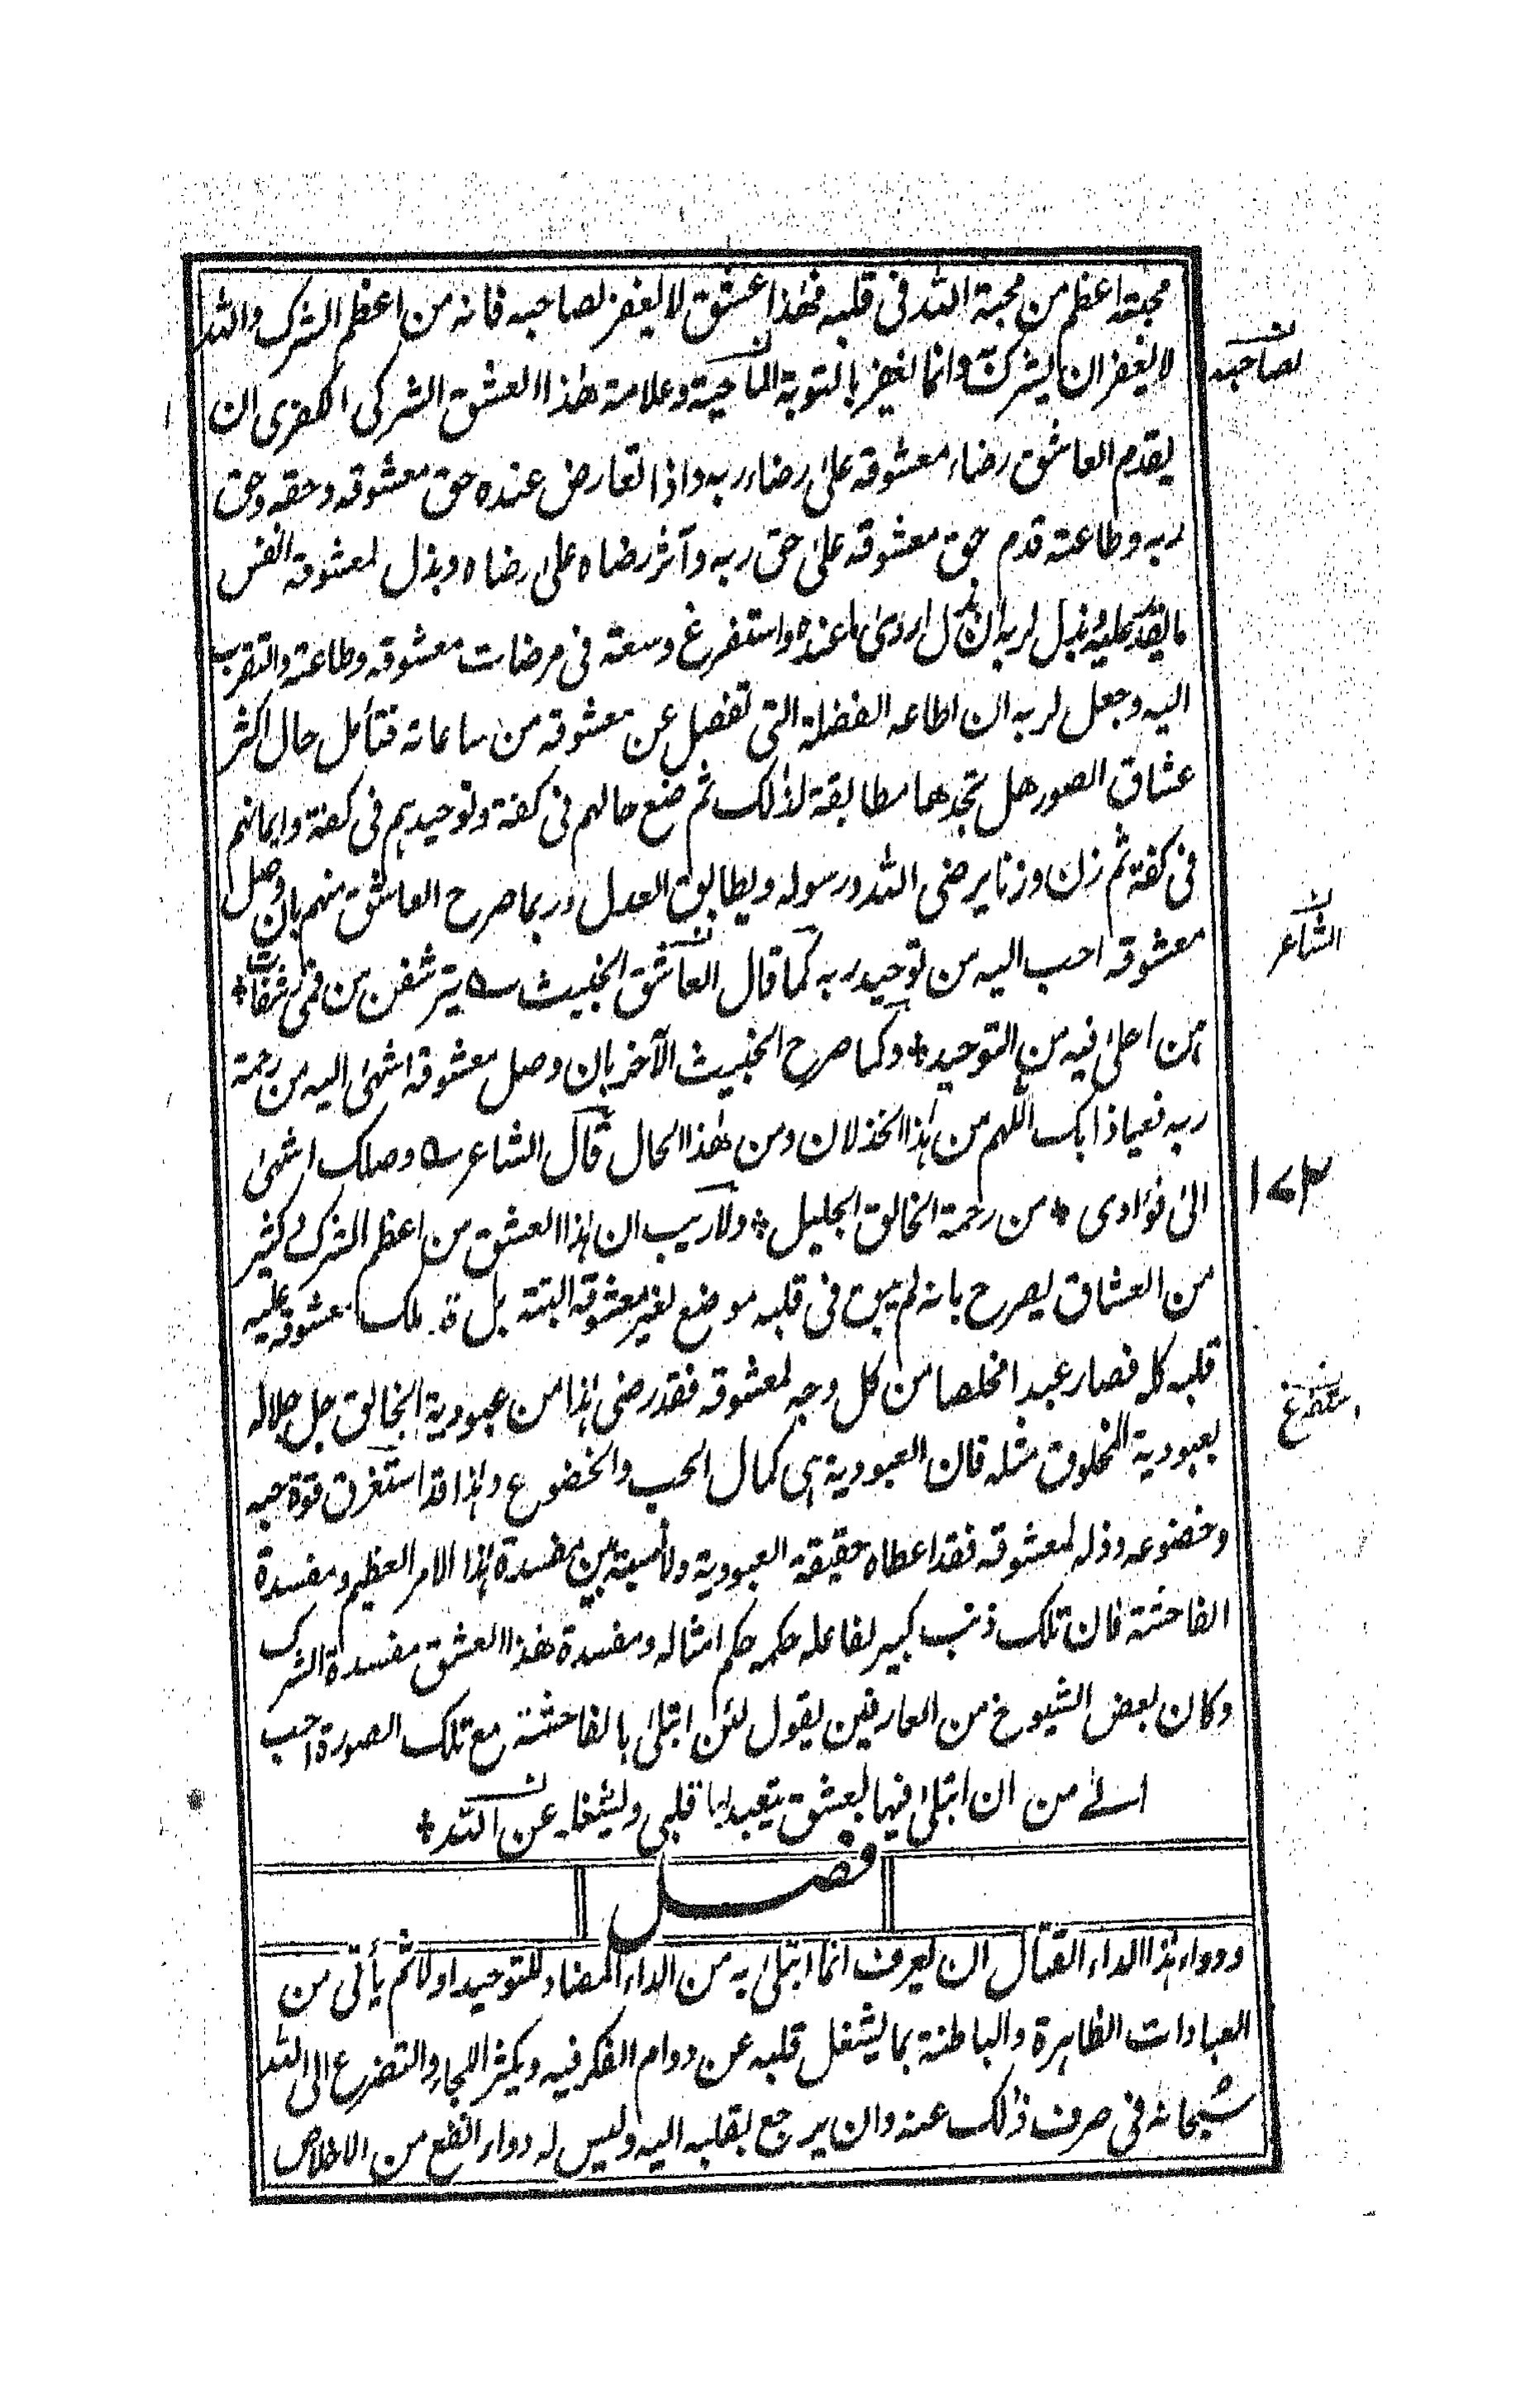 محبته اعظم من محبة الله فى قلبه فهذا عشق لا يغفر لصاحبه فانه من اعظم الشرك والله
لا يغفر ان يشرك به وانما يغفر بالتوبة الماحية وعلامة هذا العشق الشركى الكفرى ان
لصاحبه
يقدم العاشق رضاء معشوقه على رضاء ربه واذا تعارض عنده حق معشوقه وحقه وحق
ربه وطاعته قدم حق معشوقه على حق ربه وآثر رضاه على رضاه وبذل لمعشوقه انفس
ما يقدر عليه وبذل لربه ان بذل اردى ما عنده واستفرغ وسعه فى مرضات معشوقه وطاعته والتقرب
اليه وجعل لربه ان اطاعه الفضلة التى تفضل عن معشوقه من ساعاته فتأمل حال اكثر
عشاق الصور هل تجدها مطابقة لذلك ثم ضع حالهم فى كفة وتوحيدهم فى كفة وايمانهم
فى كفة ثم زن وزنا يرضى الله ورسوله ويطابق العدل وربما صرح العاشق منهم بان وصل
معشوقه احب اليه من توحيد ربه كما قال العاشق الخبيث يترشفن من فمى رشفات *
الشاعر
هن احلى فيه من التوحيد * وكما صرح الخبيث الآخر بان وصل معشوقه اشهى اليه من رحمة
ربه فعياذا بك اللهم من هذا الخذلان ومن هذا الحال قال الشاعر وصلك اشهى
الى فؤادى * من رحمة الخالق الجليل * ولا ريب ان هذا العشق من اعظم الشرك وكثير
١٧٣
من العشاق يصرح بانه لم يبق فى قلبه موضع لغير معشوقه البتة بل قد ملك معشوقه عليه
قلبه كله فصار عبدا مخلصا من كل وجه لمعشوقه فقد رضى هذا من عبودية الخالق جل جلاله
بعبودية المخلوق مثله فان العبودية هى كمال الحب والخضوع وهذا قد استغرق قوة حبه
وخضوعه وذله لمعشوقه فقد اعطاه حقيقة العبودية ولا نسبة بين مفسدة هذا الامر العظيم ومفسدة
الفاحشة فان تلك ذنب كبير لفاعله حكمه حكم امثاله ومفسدة هذا العشق مفسدة الشرك
وكان بعض الشيوخ من العارفين يقول لئن ابتلى بالفاحشة مع تلك الصورة احب
الى من ان ابتلى فيها بعشق يتعبد لها قلبى ويشغله عن الله *
فصل
ودواء هذا الداء القتال ان يعرف انما ابتلى به من الداء المضاد للتوحيد اولا ثم يأتى من
العبادات الظاهرة والباطنة بما يشغل قلبه عن دوام الفكر فيه ويكثر اللجاء والتضرع الى الله
سبحانه فى صرف ذلك عنه وان يرجع بقلبه اليه وليس له دواء انفع من الاخلاص